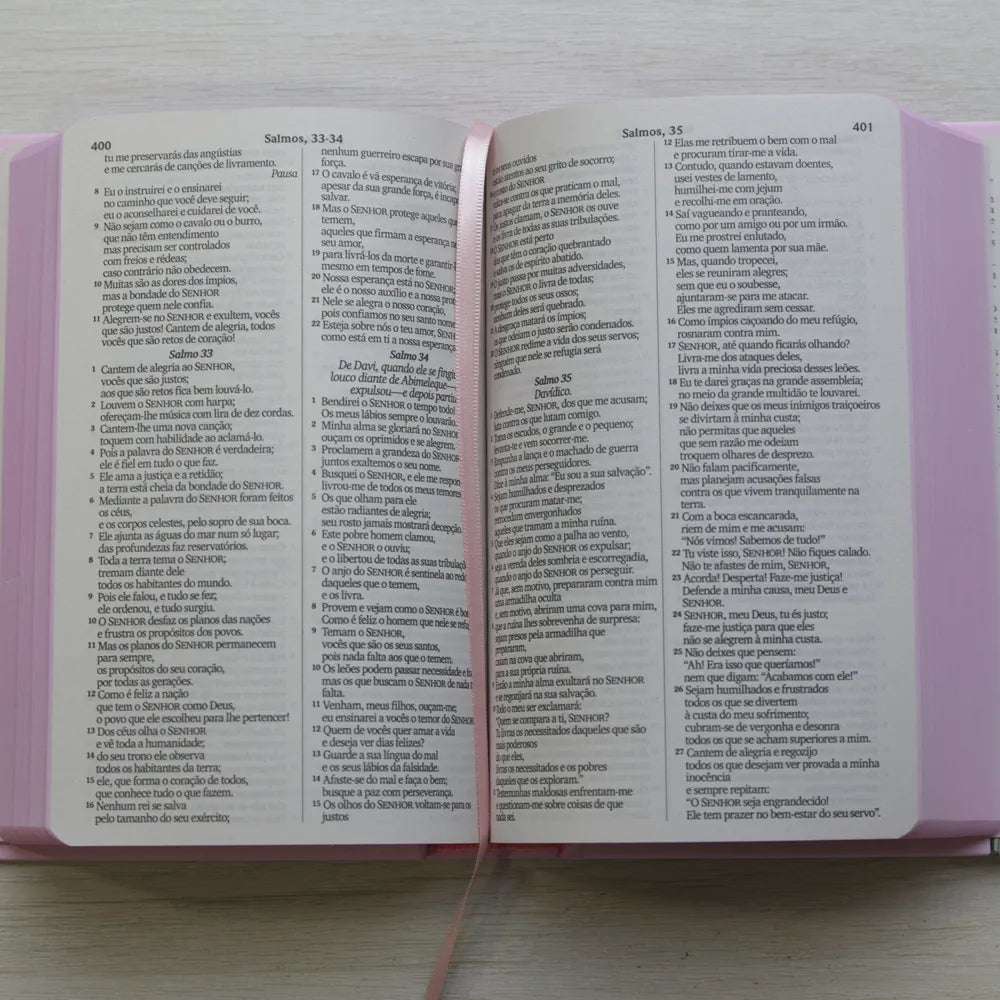 400
Salmos, 33-34
tu me preservarás das angústias
e me cercarás de canções de livramento.
Pausa
8 Eu o instruirei e o ensinarei
no caminho que você deve seguir;
eu o aconselharei e cuidarei de você.
9 Não sejam como o cavalo ou o burro,
que não têm entendimento
mas precisam ser controlados
com freios e rédeas;
caso contrário não obedecem.
10 Muitas são as dores dos ímpios,
mas a bondade do SENHOR
protege quem nele confia.
11 Alegrem-se no SENHOR e exultem, vocês
que são justos! Cantem de alegria, todos
vocês que são retos de coração!
Salmo 33
1 Cantem de alegria ao SENHOR,
vocês que são justos;
aos que são retos fica bem louvá-lo.
2 Louvem o SENHOR com harpa;
ofereçam-lhe música com lira de dez cordas.
3 Cantem-lhe uma nova canção;
toquem com habilidade ao aclamá-lo.
4 Pois a palavra do SENHOR é verdadeira;
ele é fiel em tudo o que faz.
5 Ele ama a justiça e a retidão;
a terra está cheia da bondade do SENHOR.
6 Mediante a palavra do SENHOR foram feitos
os céus,
e os corpos celestes, pelo sopro de sua boca.
7 Ele ajunta as águas do mar num só lugar;
das profundezas faz reservatórios.
8 Toda a terra tema o SENHOR;
tremam diante dele
todos os habitantes do mundo.
9 Pois ele falou, e tudo se fez;
ele ordenou, e tudo surgiu.
10 O SENHOR desfaz os planos das nações
e frustra os propósitos dos povos.
11 Mas os planos do SENHOR permanecem
para sempre,
os propósitos do seu coração,
por todas as gerações.
12 Como é feliz a nação
que tem o SENHOR como Deus,
o povo que ele escolheu para lhe pertencer!
13 Dos céus olha o SENHOR
e vê toda a humanidade;
14 do seu trono ele observa
todos os habitantes da terra;
15 ele, que forma o coração de todos,
que conhece tudo o que fazem.
16 Nenhum rei se salva
pelo tamanho do seu exército;
nenhum guerreiro escapa por sua
força.
17 O cavalo é vã esperança de vitória;
apesar da sua grande força, é
salvar.
18 Mas o SENHOR protege aqueles
temem,
aqueles que firmam a esperança
seu amor,
19 para livrá-los da morte e
mesmo em tempos de fome.
20 Nossa esperança está no SENHOR;
ele é o nosso auxílio e a nossa
21 Nele se alegra o nosso coração,
pois confiamos no seu santo nome.
22 Esteja sobre nós o teu amor,
como está em ti a nossa esperança.
Salmo 34
De Davi, quando ele se
louco diante de Abimeleque
expulsou—e depois
1 Bendirei o SENHOR o tempo todo!
Os meus lábios sempre o louvarão.
2 Minha alma se gloriará no SENHOR;
ouçam os oprimidos e se alegrem.
3 Proclamem a grandeza do SENHOR
juntos exaltemos o seu nome.
4 Busquei o SENHOR, e ele me
livrou-me de todos os meus temores.
5 Os que olham para ele
estão radiantes de alegria;
seu rosto jamais mostrará decepção.
6 Este pobre homem clamou,
e o SENHOR o ouviu;
e o libertou de todas as suas
7 O anjo do SENHOR é sentinela ao
daqueles que o temem,
e os livra.
8 Provem e vejam como o SENHOR é
Como é feliz o homem que nele se
9 Temam o SENHOR,
vocês que são os seus santos,
pois nada falta aos que o temem.
10 Os leões podem passar necessidade e
mas os que buscam o SENHOR de nada
falta.
11 Venham, meus filhos, ouçam-me;
eu ensinarei a vocês o temor do SENHOR.
12 Quem de vocês quer amar a vida
e deseja ver dias felizes?
13 Guarde a sua língua do mal
e os seus lábios da falsidade.
14 Afaste-se do mal e faça o bem;
busque a paz com perseverança.
15 Os olhos do SENHOR voltam-se para os
justos
Salmos, 35
401
seus ouvidos
estão atentos ao seu grito de socorro;
rosto do SENHOR
contra os que praticam o mal,
para apagar da terra a memória deles.
justos clamam, o SENHOR os ouve
os livra de todas as suas tribulações.
SENHOR está perto
dos que têm o coração quebrantado
e salva os de espírito abatido.
justo passa por muitas adversidades,
mas o SENHOR o livra de todas;
protege todos os seus ossos;
nenhum deles será quebrado.
desgraça matará os ímpios;
os que odeiam o justo serão condenados.
SENHOR redime a vida dos seus servos;
ninguém que nele se refugia será
condenado.
Salmo 35
Davídico.
Defende-me, SENHOR, dos que me acusam;
luta contra os que lutam comigo.
Toma os escudos, o grande e o pequeno;
levanta-te e vem socorrer-me.
Empunha a lança e o machado de guerra
contra os meus perseguidores.
Dize à minha alma: “Eu sou a sua salvação”.
Sejam humilhados e desprezados
os que procuram matar-me;
retrocedam envergonhados
aqueles que tramam a minha ruína.
Que eles sejam como a palha ao vento,
quando o anjo do SENHOR os expulsar;
seja a vereda deles sombria e escorregadia,
quando o anjo do SENHOR os perseguir.
Já que, sem motivo, prepararam contra mim
uma armadilha oculta
e, sem motivo, abriram uma cova para mim,
que a ruína lhes sobrevenha de surpresa:
sejam presos pela armadilha que
prepararam,
caiam na cova que abriram,
para a sua própria ruína.
Então a minha alma exultará no SENHOR
e se regozijará na sua salvação.
Todo o meu ser exclamará:
“Quem se compara a ti, SENHOR?
Tu livras os necessitados daqueles que são
mais poderosos
do que eles,
livras os necessitados e os pobres
daqueles que os exploram.”
Testemunhas maldosas enfrentam-me
e questionam-me sobre coisas de que
nada sei.
12 Elas me retribuem o bem com o mal
e procuram tirar-me a vida.
13 Contudo, quando estavam doentes,
usei vestes de lamento,
humilhei-me com jejum
e recolhi-me em oração.
14 Saí vagueando e pranteando,
como por um amigo ou por um irmão.
Eu me prostrei enlutado,
como quem lamenta por sua mãe.
15 Mas, quando tropecei,
eles se reuniram alegres;
sem que eu o soubesse,
ajuntaram-se para me atacar.
Eles me agrediram sem cessar.
16 Como ímpios caçoando do meu refúgio,
rosnaram contra mim.
17 SENHOR, até quando ficarás olhando?
Livra-me dos ataques deles,
livra a minha vida preciosa desses leões.
18 Eu te darei graças na grande assembleia;
no meio da grande multidão te louvarei.
19 Não deixes que os meus inimigos traiçoeiros
se divirtam à minha custa;
não permitas que aqueles
que sem razão me odeiam
troquem olhares de desprezo.
20 Não falam pacificamente,
mas planejam acusações falsas
contra os que vivem tranquilamente na
terra.
21 Com a boca escancarada,
riem de mim e me acusam:
“Nós vimos! Sabemos de tudo!”
22 Tu viste isso, SENHOR! Não fiques calado.
Não te afastes de mim, SENHOR,
23 Acorda! Desperta! Faze-me justiça!
Defende a minha causa, meu Deus e
SENHOR.
24 SENHOR, meu Deus, tu és justo;
faze-me justiça para que eles
não se alegrem à minha custa.
25 Não deixes que pensem:
“Ah! Era isso que queríamos!”
nem que digam: “Acabamos com ele!”
26 Sejam humilhados e frustrados
todos os que se divertem
à custa do meu sofrimento;
cubram-se de vergonha e desonra
todos os que se acham superiores a mim.
27 Cantem de alegria e regozijo
todos os que desejam ver provada a minha
inocência
e sempre repitam:
“O SENHOR seja engrandecido!
Ele tem prazer no bem-estar do seu servo”.